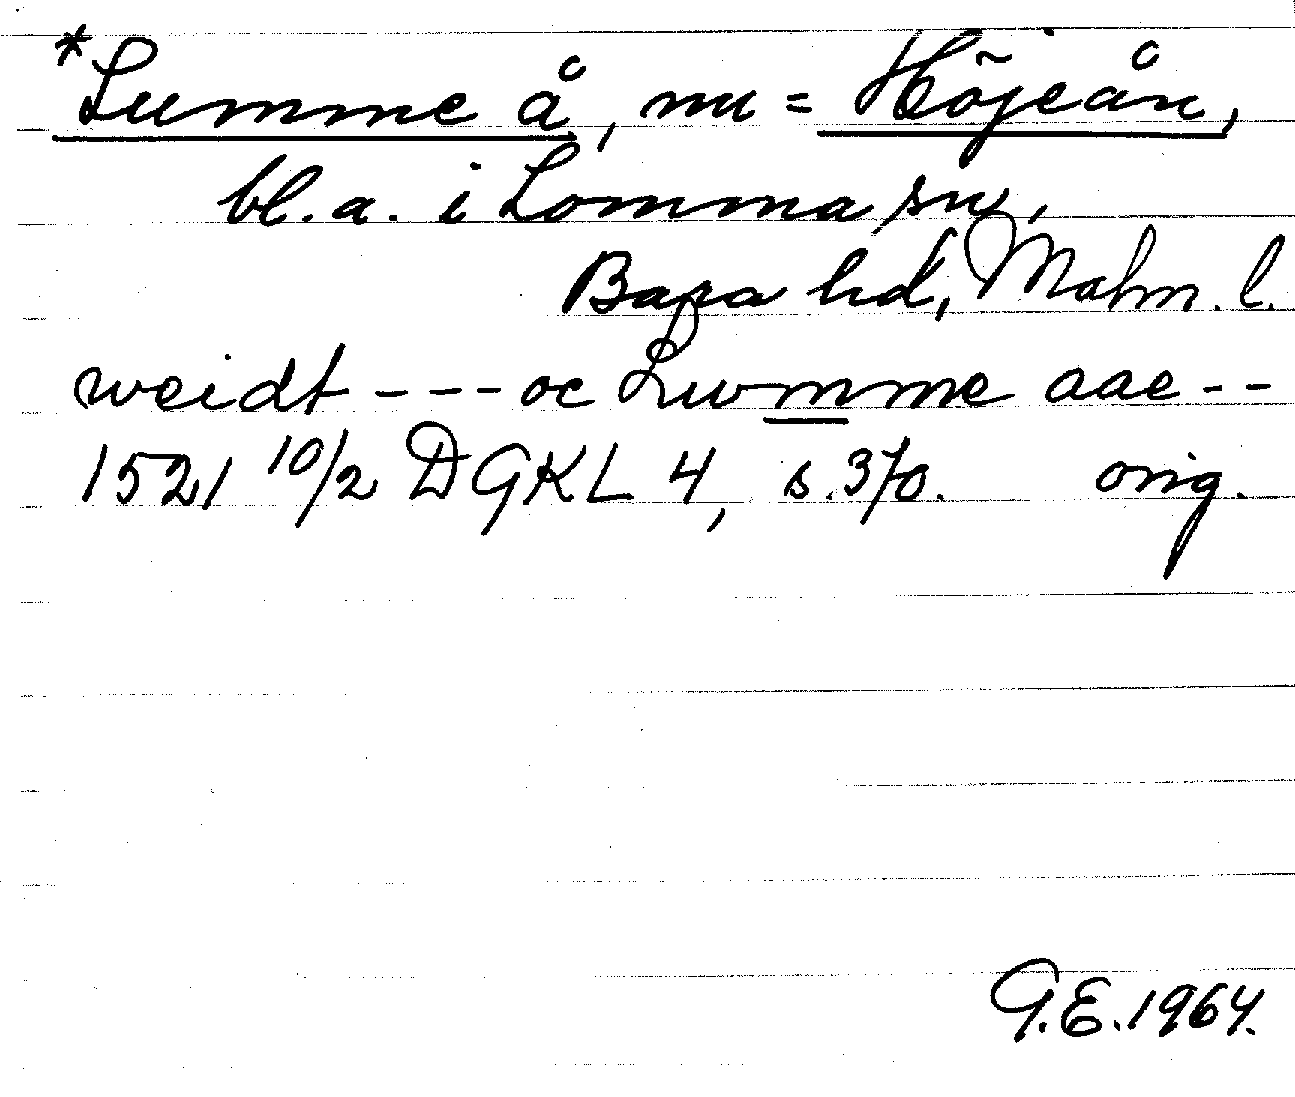 *Lumme å, nu = Höjeån,
bl. a. i Lomma sn,
Bara hd, Malm. l.
weidt --- oc Lwmme aae --
1521 10/2 DGKL 4, s. 370. orig.
G.E. 1964.